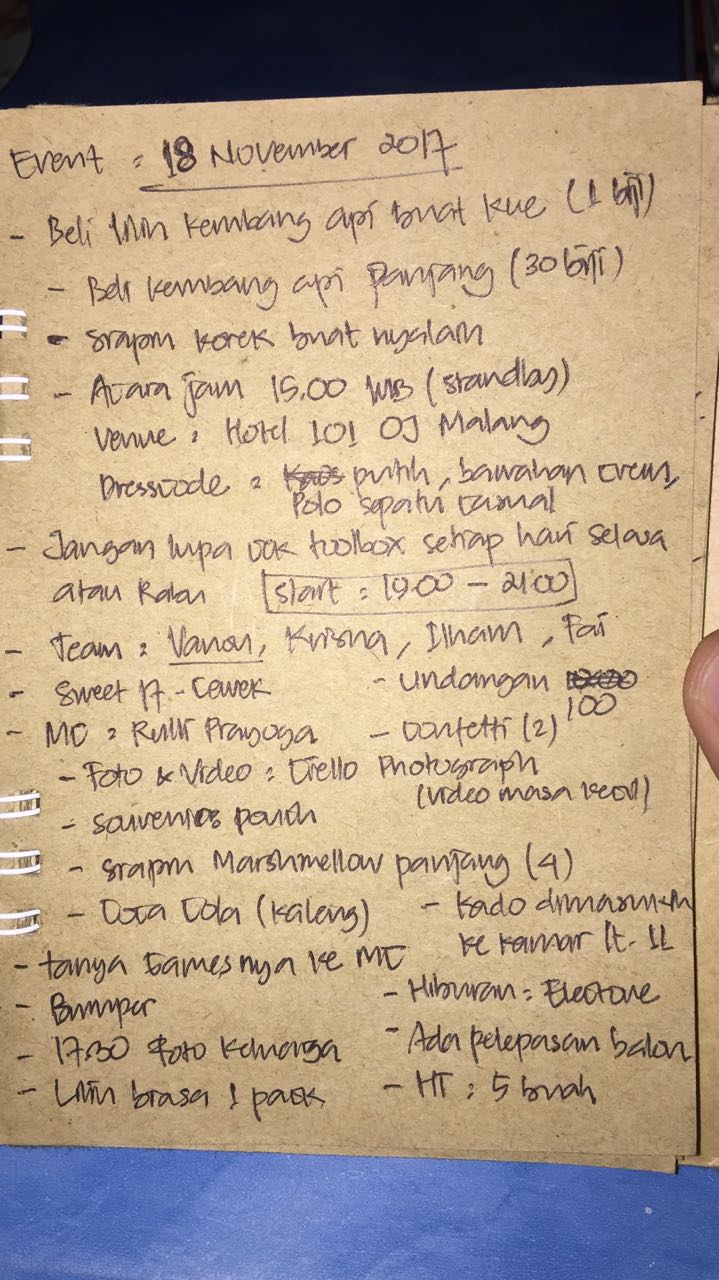 Event : 18 November 2017
- Beli lilin kembang api buat kue (1 biji)
- Beli kembang api Panjang (30 biji)
- siapin korek buat nyalain
- Acara jam 15.00 WIB (standby)
Venue : Hotel 101 OJ Malang
Dresscode : Kaos putih, bawahan cream,
Polo sepatu casual
- Jangan lupa cek toolbox setiap hari selasa
atau Rabu start : 19.00 - 21.00
- Team : Vanou, Krisna, Ilham, Fai
- Sweet 17 - Cewek
- Undangan
100
- MC : Rulli Prayoga
- Confetti (2)
- Foto & Video : Ciello Photograph
(video masa kecil)
- souvenir pouch
- siapin Marshmellow panjang (4)
- Coca Cola (kaleng)
- kado dimasukin
ke kamar lt. 11
- tanya Games nya ke MC
- Bumper
- Hiburan : Electone
- 17.30 Foto keluarga
- Ada pelepasan balon
- Lilin biasa 1 pack
- HT : 5 buah